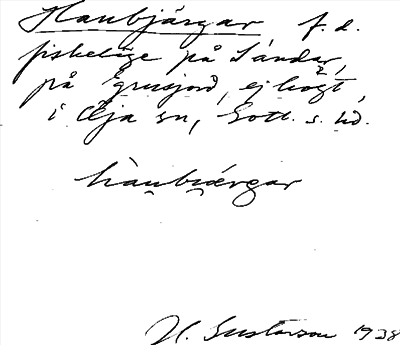 Haubjärgar, f. d.
fiskeläge på Sándar,
på grusjord, ej högt,
i Öja sn, Gotl. s. hd.
hàubiærgar
H. Gustavson 1938